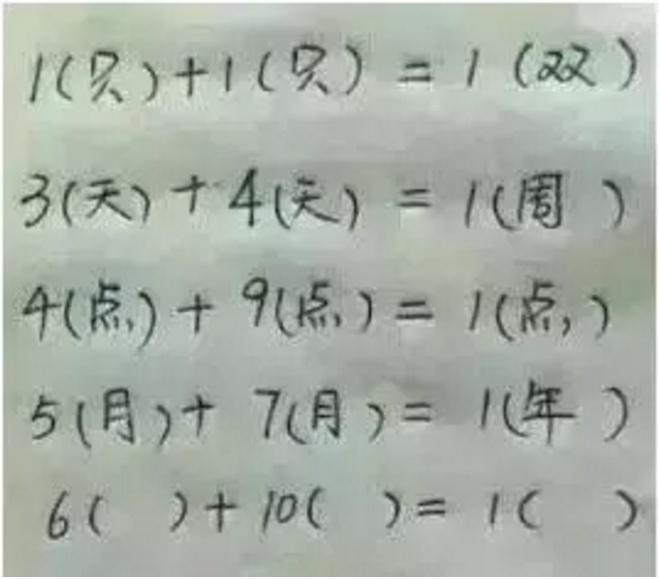 1(只)+1(只) = 1(双)
3(天)+4(天) = 1(周 )
4(点)+9(点) = 1(点)
5(月)+7(月) = 1(年 )
6( )+10( ) = 1( )